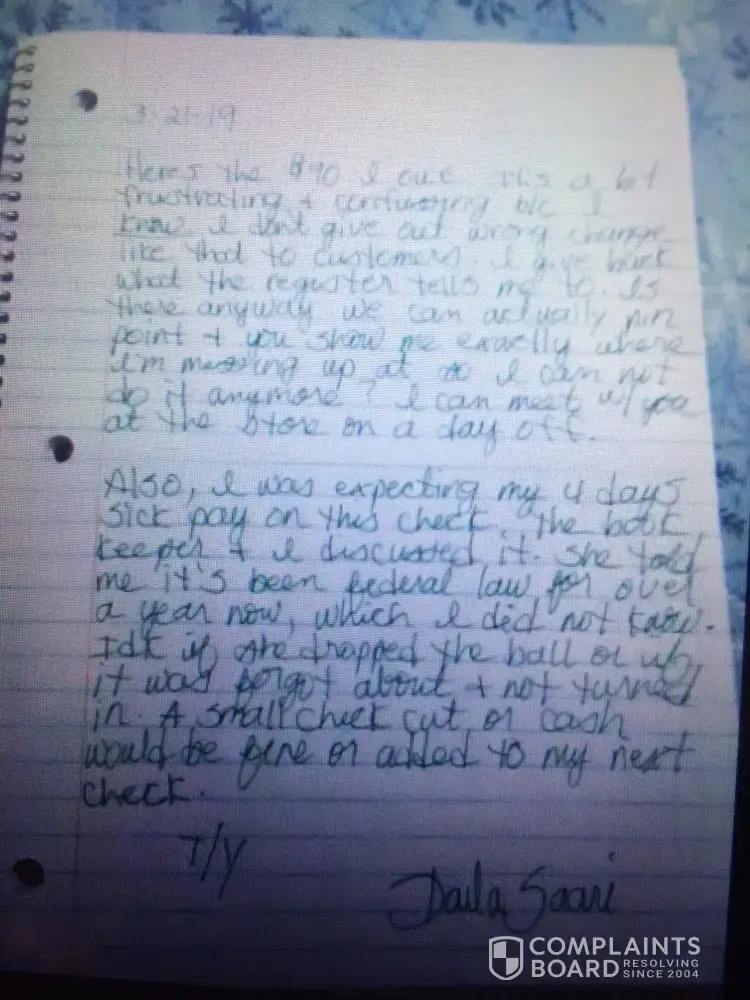 3-21-19
Here's the $90 I owe. It's a bit
frustrating + confusing b/c I
know I don't give out wrong change
like that to customers. I give back
what the register tells me to. Is
there anyway we can actually pin
point + you show me exactly where
I'm messing up at so I can not
do it anymore? I can meet w/ you
at the store on a day off.
Also, I was expecting my 4 days
sick pay on this check. The book
keeper + I discussed it. She told
me it's been federal law for over
a year now, which I did not know.
Idk if she dropped the ball or
it was forgot about + not turned
in. A small check cut, or cash
would be fine or added to my next
check.
T/Y
Saari
COMPLAINTS
BOARD RESOLVING
SINCE 2004